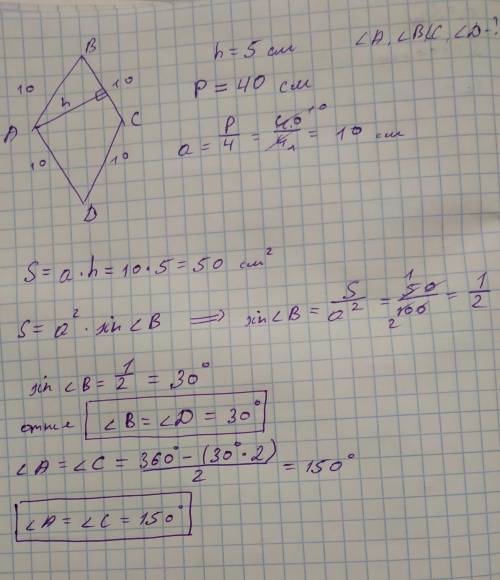 B
10
10
h
A
C
10
10
D
h = 5 см
∠A, ∠B, ∠C, ∠D-?
P = 40 см
a = P/4 = 40/4 = 10 см
10
1
S = a · h = 10 · 5 = 50 см²
S = a² · sin∠B ⟹ sin∠B = S/a² = 50/100 = 1/2
1
2
sin∠B = 1/2 = 30°
отже ∠B = ∠D = 30°
∠A = ∠C = 360° - (30° · 2)/2 = 150°
∠A = ∠C = 150°